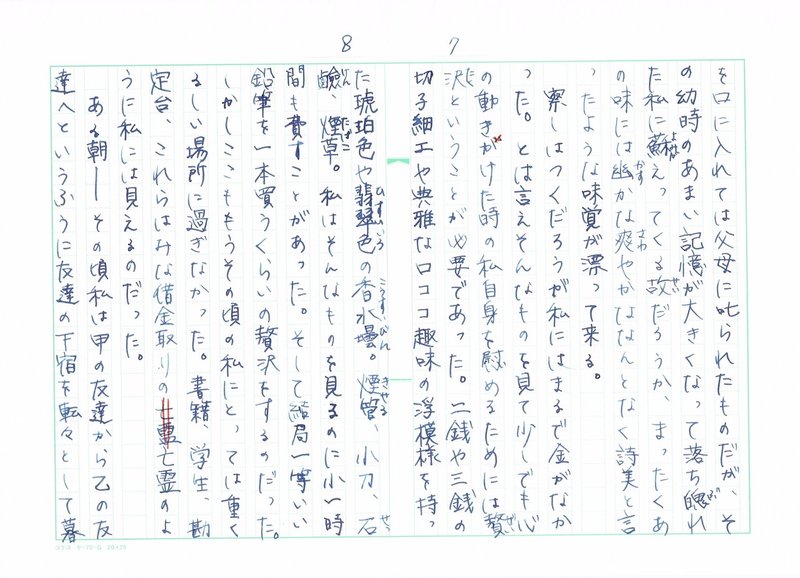 7
を口に入れては父母に叱られたものだが、そ
の幼時のあまい記憶が大きくなって落ち魄れ
た私に蘇えってくる故だろうか、まったくあ
の味には幽かな爽やかななんとなく詩美と言
ったような味覚が漂って来る。
察しはつくだろうが私にはまるで金がなか
った。とは言えそんなものを見て少しでも心
の動きかけた時の私自身を慰めるためには贅
沢ということが必要であった。二銭や三銭の
切子細工や典雅なロココ趣味の浮模様を持っ
8
た琥珀色や翡翠色の香水壜。煙管、小刀、石
鹸、煙草。私はそんなものを見るのに小一時
間も費すことがあった。そして結局一等いい
鉛筆を一本買うくらいの贅沢をするのだった。
しかしここももうその頃の私にとっては重く
るしい場所に過ぎなかった。書籍、学生、勘
定台、これらはみな借金取りの亡霊のよ
うに私には見えるのだった。
ある朝―その頃私は甲の友達から乙の友
達へというふうに友達の下宿を転々として暮
コクヨ ケ-70-G 20×20